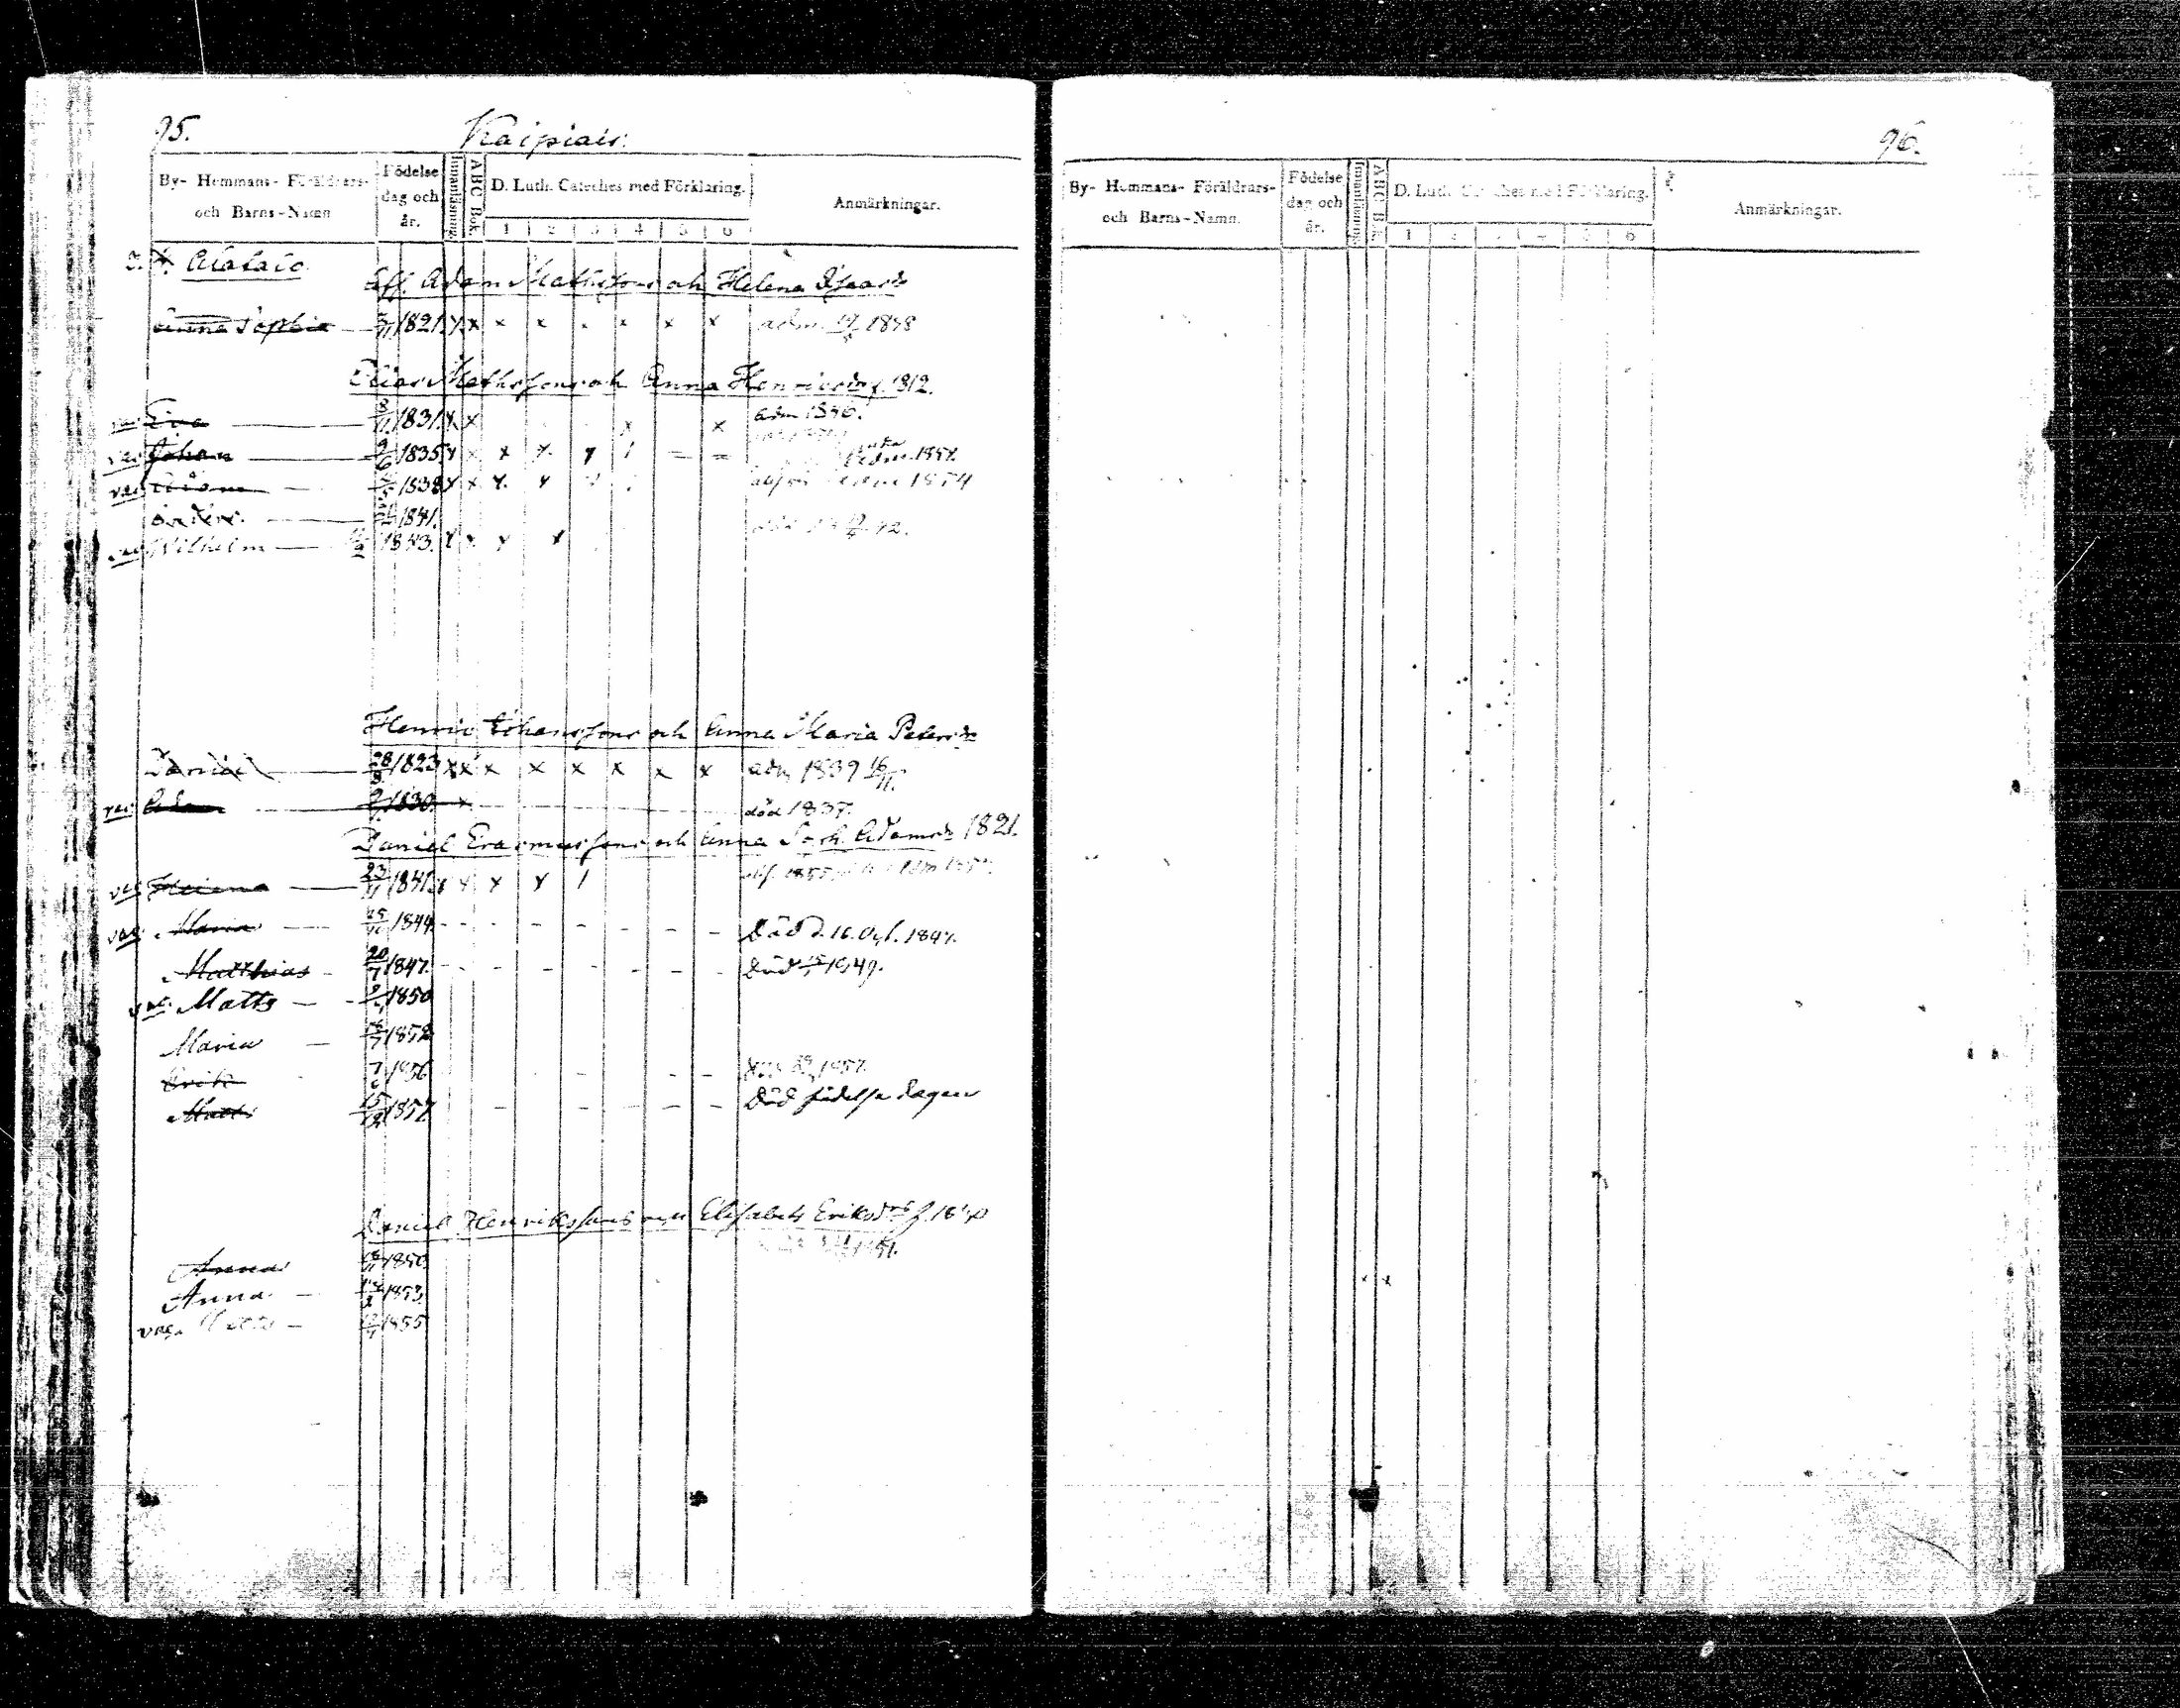 95.
Kaipiais.
By- Hemmans- Föräldrars- och Barns-Namn
Födelse dag och år.
Innanläsning.
ABC Bok.
D. Luth. Cateches med Förklaring.
1 2 3 4 5 6
Anmärkningar.
3. Alatalo
Eff. Adam Mathssons och Helena Isaacsdr
Anna Sophia 3/11 1821. x x x x . x x x adm. 1838
Elias Mathssons och Anna Henricsdr f. 1812.
vac Eva 8/11 1831. x x x x adm 1846.
vac Johan 9/6 1835. x x x x x / = = adm. 1854.
vac Adam 1838 x x x x 1854
Anders. 1841. död 42.
vac Wilhelm 1843. x x x x
Henric Johanssons och Anna Maria Petersdr
Daniel 28/8 1823 x x x x x x x x adm 1839 16/11.
vac Adam 1830. x död 1837.
Daniel Erasmussons och Anna Soph. Adamsdr 1821.
vac Helena 23/11 1841. x x x x / 1855
vac Maria 25/10 1844 - - - - - - - Död d. 16. Oct. 1847.
Matthias 20/7 1847. - - - - - - - Död 1849.
vac. Matts 1850
Maria 1852
Erik 7/6 1856 - - - 1857.
Matts 15/12 1857. - - - - - - Död födelse dagen
Daniel Henrikssons och Elisabeth Eriksdrs f.
Anna 1850. 1851.
Anna 1853.
vac. 1855
96.
By- Hemmans- Föräldrars- och Barns-Namn.
Födelse dag och år.
Innanläsning.
ABC Bok.
D. Luth. Cateches med Förklaring.
1 2 3 4 5 6
Anmärkningar.